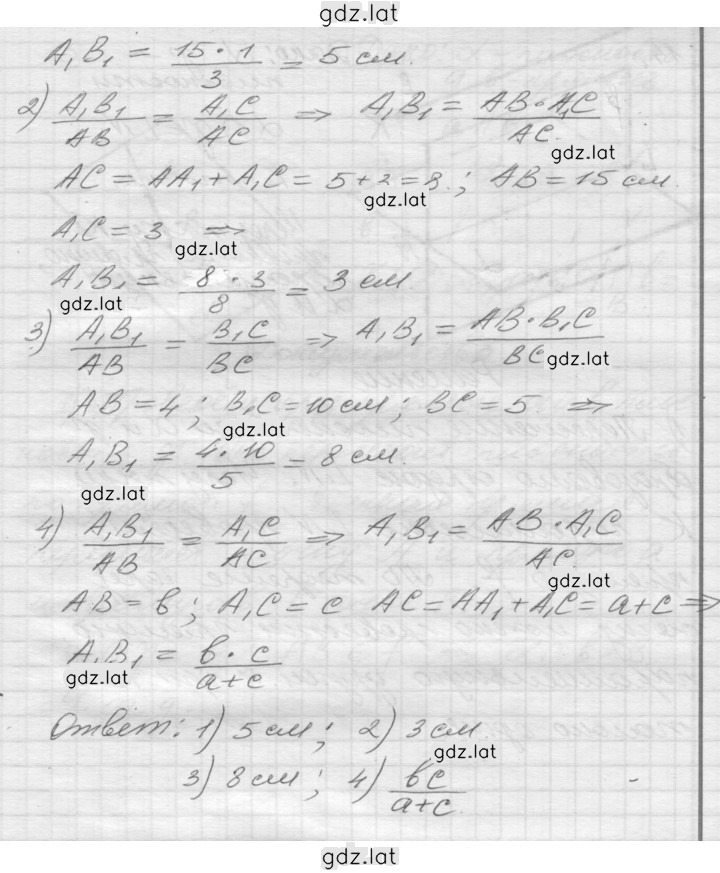 gdz.lat
A₁B₁ = 15·1/3 = 5 см.
2) A₁B₁/AB = A₁C/AC ⇒ A₁B₁ = AB·A₁C/AC
gdz.lat
AC = AA₁ + A₁C = 5+2=8; AB = 15 см.
gdz.lat
A₁C = 3 ⇒
gdz.lat
A₁B₁ = 8·3/8 = 3 см
gdz.lat
3) A₁B₁/AB = B₁C/BC ⇒ A₁B₁ = AB·B₁C/BC
gdz.lat
AB = 4; B₁C = 10 см; BC = 5 ⇒
gdz.lat
A₁B₁ = 4·10/5 = 8 см.
gdz.lat
4) A₁B₁/AB = A₁C/AC ⇒ A₁B₁ = AB·A₁C/AC
gdz.lat
AB = в; A₁C = c AC = AA₁ + A₁C = a+c ⇒
A₁B₁ = в·c/a+c
gdz.lat
Ответ: 1) 5 см; 2) 3 см.
gdz.lat
3) 8 см; 4) вc/a+c.
gdz.lat